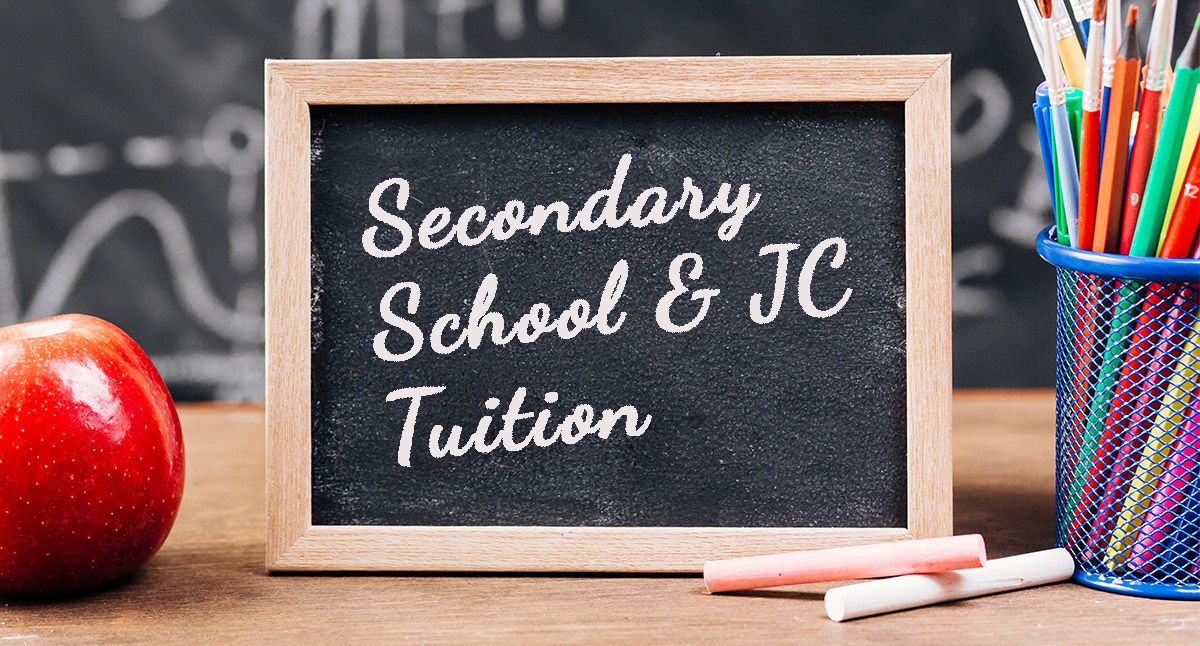 Secondary
School & JC
Tuition
12